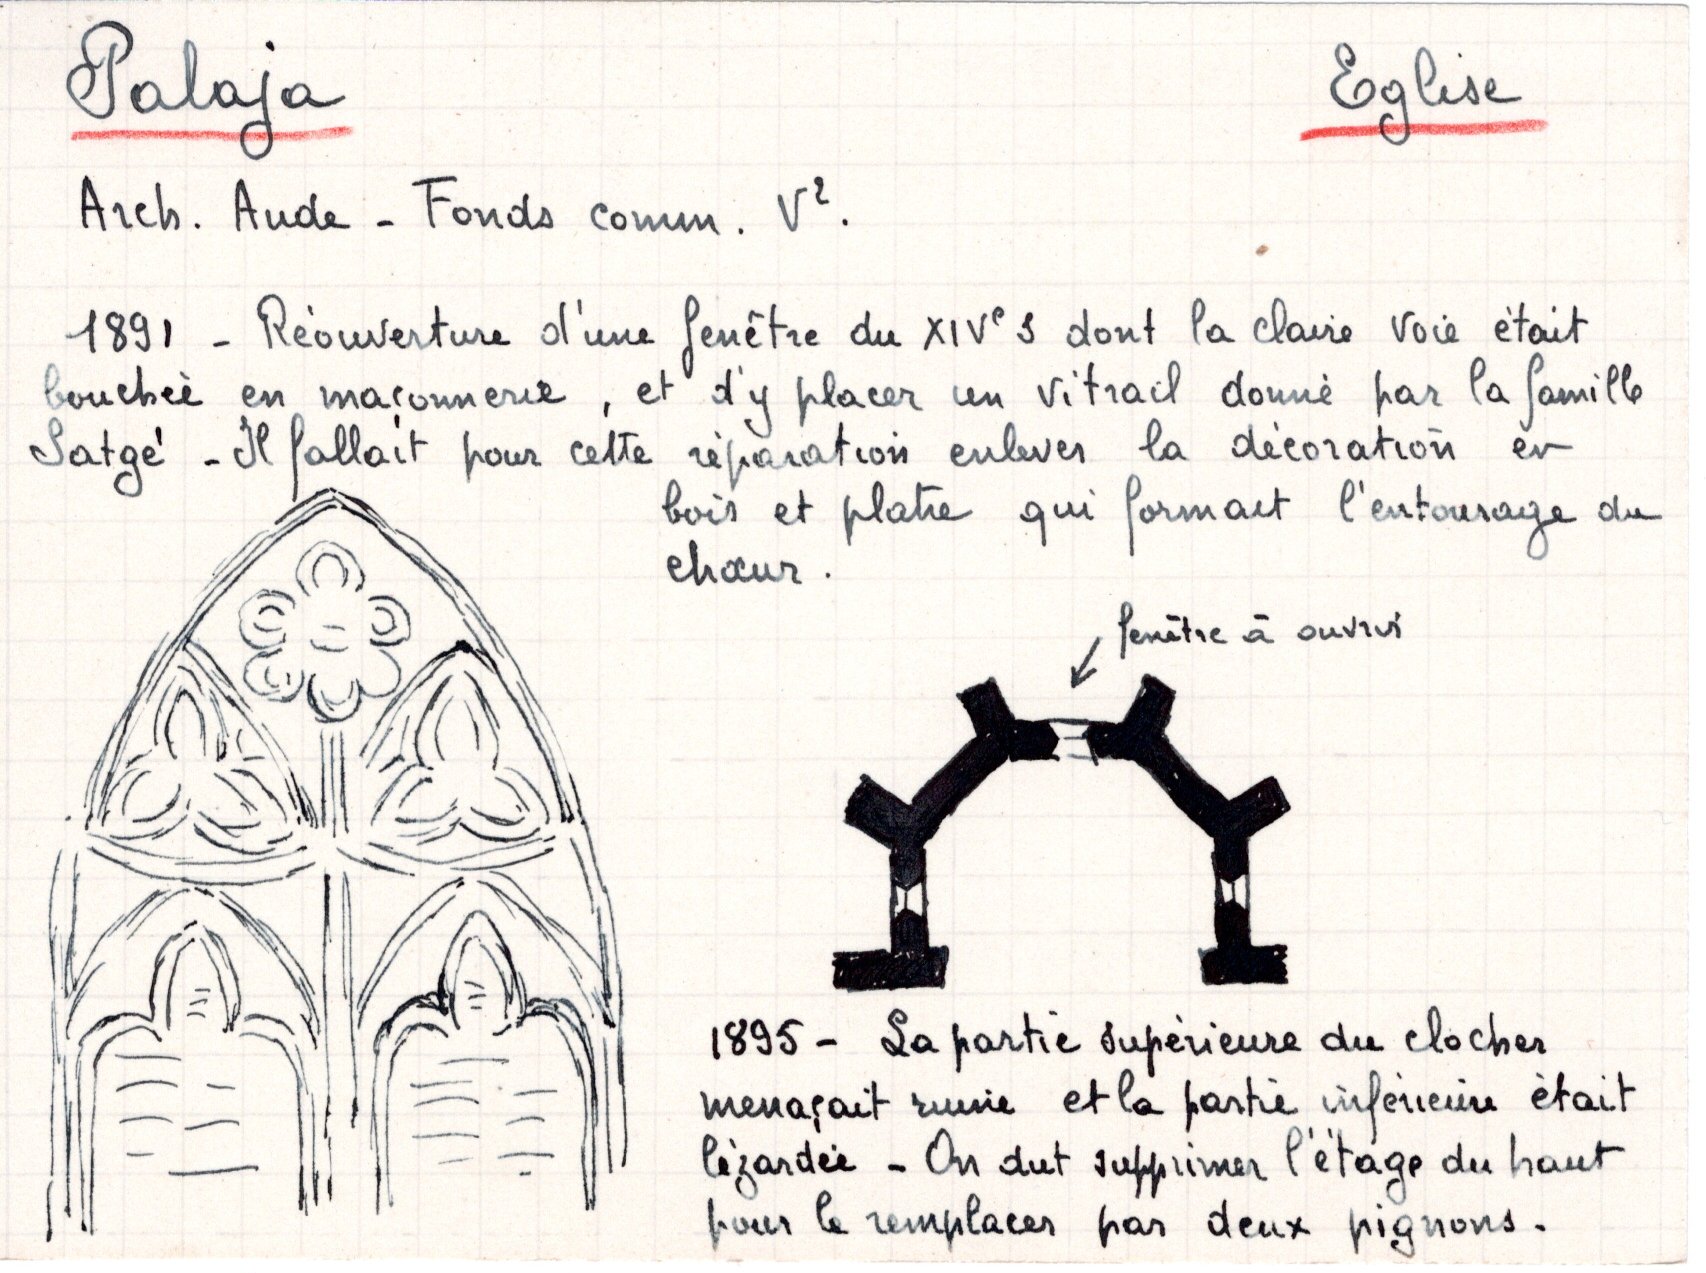 Palaja
Eglise
Arch. Aude - Fonds comm. V².
1891 - Réouverture d'une fenêtre du XIVᵉ s dont la claire voie était
bouchée en maçonnerie, et d'y placer un vitrail donné par la famille
Satgé - Il fallait pour cette réparation enlever la décoration en
bois et platre qui formait l'entourage du
chœur.
fenêtre à ouvrir
1895 - La partie supérieure du clocher
menaçait ruine et la partie inférieure était
lézardée - On dut supprimer l'étage du haut
pour le remplacer par deux pignons.